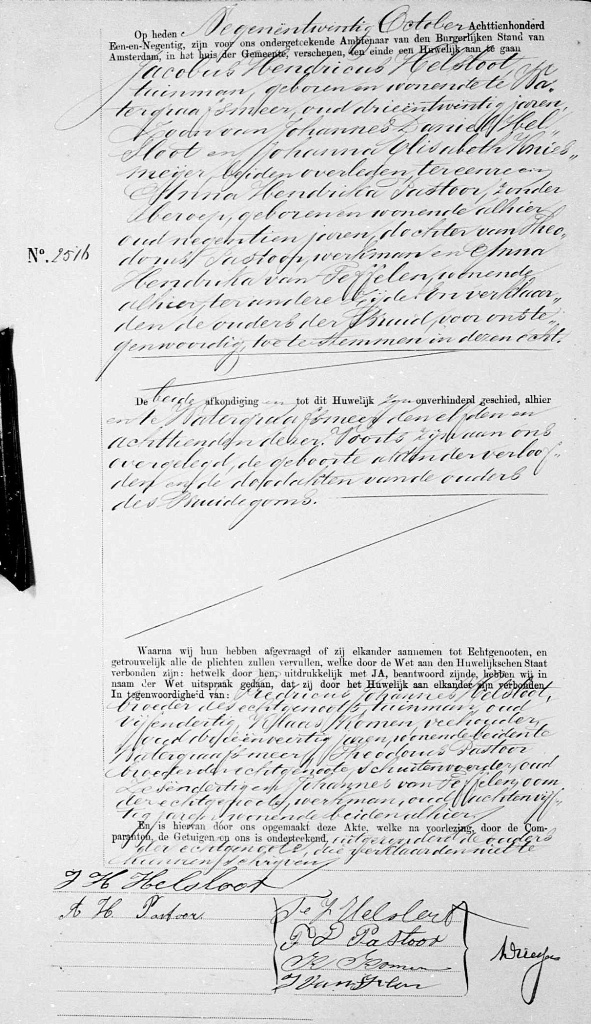 Op heden Negenentwintig October Achttienhonderd
Een-en-Negentig, zijn voor ons ondergeteekende Ambtenaar van den Burgerlijken Stand van
Amsterdam, in het huis der Gemeente, verschenen, ten einde een Huwelijk aan te gaan
Jacobus Hendricus Helsloot,
tuinman, geboren en wonende te Wa-
tergraafsmeer, oud drieëntwintig jaren,
Zoon van Johannes Daniel Hel-
sloot en Johanna Elisabeth Knies-
meijer, beiden overleden, ter eenre en
Anna Hendrika Pastoor, zonder
beroep, geboren en wonende alhier,
oud negentien jaren, dochter van Theo-
dorus Pastoor, werkman en Anna
Hendrika van Teffelen, wonende
alhier, ter andere zijde. En verklaar-
den de ouders der Bruid, voor ons te-
genwoordig, toe te stemmen in dezen Echt.
No. 2516
De beide afkondigingen tot dit Huwelijk zijn onverhinderd geschied, alhier
en te Watergraafsmeer den elfden en
achttienden dezer. Voorts zijn aan ons
overgelegd, de geboorte akten der verloof-
den en de doodakten van de ouders
des Bruidegoms.
Waarna wij hun hebben afgevraagd of zij elkander aannemen tot Echtgenooten, en
getrouwelijk alle de plichten zullen vervullen, welke door de Wet aan den Huwelijkschen Staat
verbonden zijn: hetwelk door hen, uitdrukkelijk met JA, beantwoord zijnde, hebben wij in
naam der Wet uitspraak gedaan, dat zij door het Huwelijk aan elkander zijn verbonden.
In tegenwoordigheid van: Fredricus Johannes Helsloot,
broeder des echtgenoots, tuinman, oud
vijfendertig, Klaas Komen, veehouder,
oud drieënveertig jaren, wonende beiden te
Watergraafsmeer, Theodorus Pastoor
broeder der echtgenoote, schuitenvoerder, oud
zesëndertig en Johannes van Teffelen, oom
der echtgenoote, werkman, oud achtenvijf-
tig jaren, wonende beiden alhier
En is hiervan door ons opgemaakt deze Akte, welke na voorlezing, door de Com-
paranten, de Getuigen en ons is onderteekend, uitgezonderd de ouders
der echtgenoote, die verklaarden niet te
kunnen schrijven
J H Helsloot
A H Pastoor
F J Helsloot
T Pastoor
K Komen